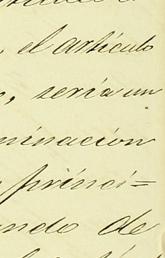 , el artículo
, sería un
minacion
princi=
ndo de